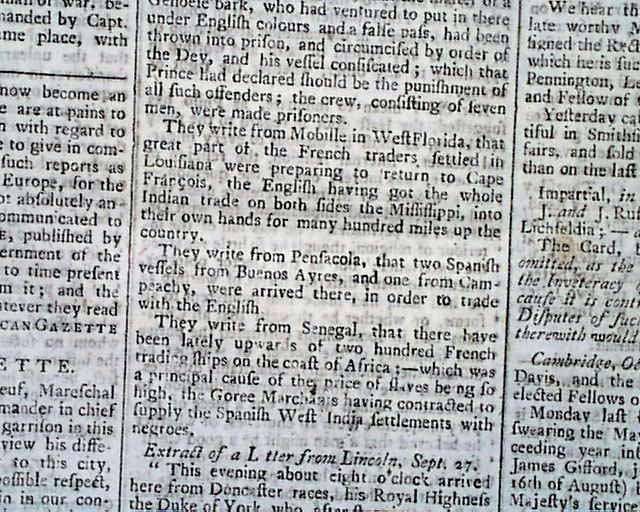 man of war, be-
manded by Capt.
ame place, with
now become an
e are at pains to
n with regard to
e to give in com-
such reports as
Europe, for the
ot absolutely an-
ommunicated to
E, published by
ernment of the
to time present
m it; and the
tever they read
CAN GAZETTE
ETTE.
euf, Mareſchal
mander in chief
garriſon in this
view his diffe-
to this city,
poſſible reſpect,
in in our con-
Genoeſe bark, who had ventured to put in there
under Engliſh colours and a falſe paſs, had been
thrown into priſon, and circumciſed by order of
the Dey, and his veſſel confiſcated; which that
Prince had declared ſhould be the puniſhment of
all ſuch offenders; the crew, conſiſting of ſeven
men, were made priſoners.
They write from Mobille in Weſt Florida, that
great part of the French traders ſettled in
Louiſiana were preparing to return to Cape
François, the Engliſh having got the whole
Indian trade on both ſides the Miſſiſſippi, into
their own hands for many hundred miles up the
country.
They write from Penſacola, that two Spaniſh
veſſels from Buenos Ayres, and one from Cam-
peachy, were arrived there, in order to trade
with the Engliſh.
They write from Senegal, that there have
been lately upwards of two hundred French
trading ſhips on the coaſt of Africa;—which was
a principal cauſe of the price of ſlaves being ſo
high, the Goree Merchants having contracted to
ſupply the Spaniſh Weſt India ſettlements with
negroes.
Extract of a L tter from Lincoln, Sept. 27.
" This evening about eight o'clock arrived
here from Doncaſter races, his Royal Highneſs
the Duke of York, who
We hear th
late worthy M
ſigned the Rect
which he is ſuc
Pennington, 
and Fellow of
Yeſterday cat
tiful in Smithf
fairs, and ſold
than on the laſt
Impartial, in
J. and J. Ru
Lichfeldia; —
The Card,
omitted, as the
the Inveteracy
cauſe it is cont
Diſputes of ſuc
therewith would
Cambridge, O
Davis, and the
elected Fellows o
Monday laſt
ſwearing the Ma
ceeding year in
James Gifford, 
16th of Auguſt)
Majeſty's ſervice